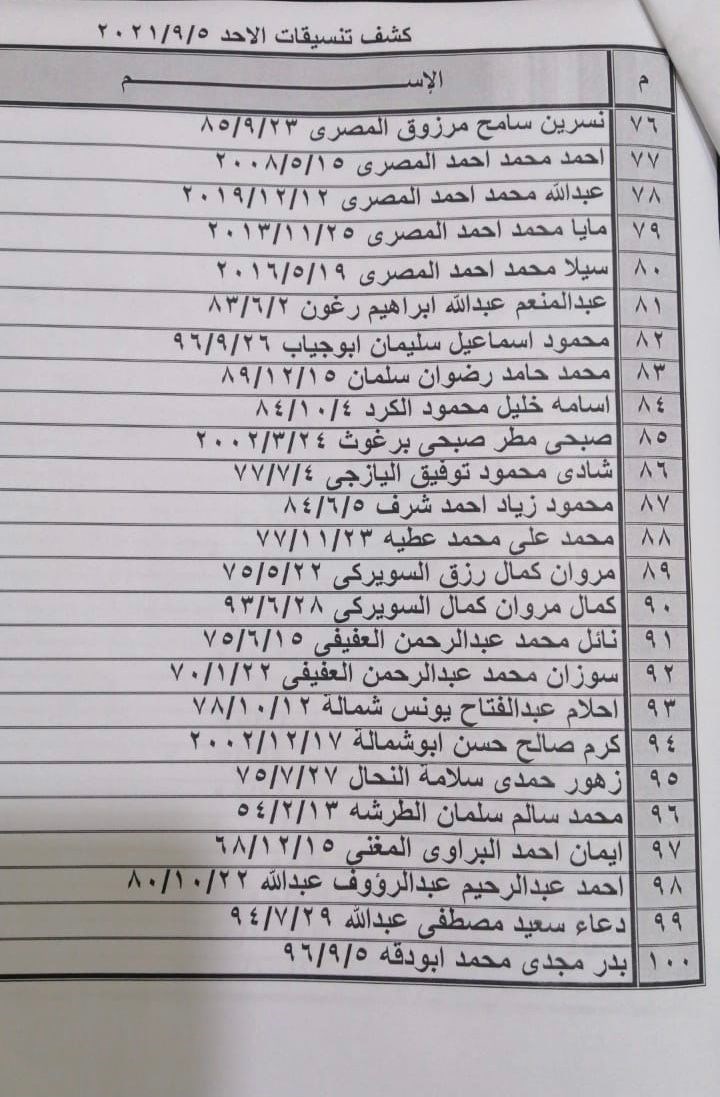 كشف تنسيقات الاحد ٢٠٢١/٩/٥
م الإســــــــــــــــم
٧٦ نسرين سامح مرزوق المصرى ٨٥/٩/٢٣
٧٧ احمد محمد احمد المصرى ٢٠٠٨/٥/١٥
٧٨ عبدالله محمد احمد المصرى ٢٠١٩/١٢/١٢
٧٩ مايا محمد احمد المصرى ٢٠١٣/١١/٢٥
٨٠ سيلا محمد احمد المصرى ٢٠١٦/٥/١٩
٨١ عبدالمنعم عبدالله ابراهيم رغون ٨٣/٦/٢
٨٢ محمود اسماعيل سليمان ابوجياب ٩٦/٩/٢٦
٨٣ محمد حامد رضوان سلمان ٨٩/١٢/١٥
٨٤ اسامه خليل محمود الكرد ٨٤/١٠/٤
٨٥ صبحى مطر صبحى برغوث ٢٠٠٢/٣/٢٤
٨٦ شادى محمود توفيق اليازجى ٧٧/٧/٤
٨٧ محمود زياد احمد شرف ٨٤/٦/٥
٨٨ محمد على محمد عطيه ٧٧/١١/٢٣
٨٩ مروان كمال رزق السويركى ٧٥/٥/٢٢
٩٠ كمال مروان كمال السويركى ٩٣/٦/٢٨
٩١ نائل محمد عبدالرحمن العفيفى ٧٥/٦/١٥
٩٢ سوزان محمد عبدالرحمن العفيفى ٧٠/١/٢٢
٩٣ احلام عبدالفتاح يونس شمالة ٧٨/١٠/١٢
٩٤ كرم صالح حسن ابوشمالة ٢٠٠٢/١٢/١٧
٩٥ زهور حمدى سلامة النحال ٧٥/٧/٢٧
٩٦ محمد سالم سلمان الطرشه ٥٤/٢/١٣
٩٧ ايمان احمد البراوى المغنى ٦٨/١٢/١٥
٩٨ احمد عبدالرحيم عبدالرؤوف عبدالله ٨٠/١٠/٢٢
٩٩ دعاء سعيد مصطفى عبدالله ٩٤/٧/٢٩
١٠٠ بدر مجدى محمد ابودقه ٩٦/٩/٥